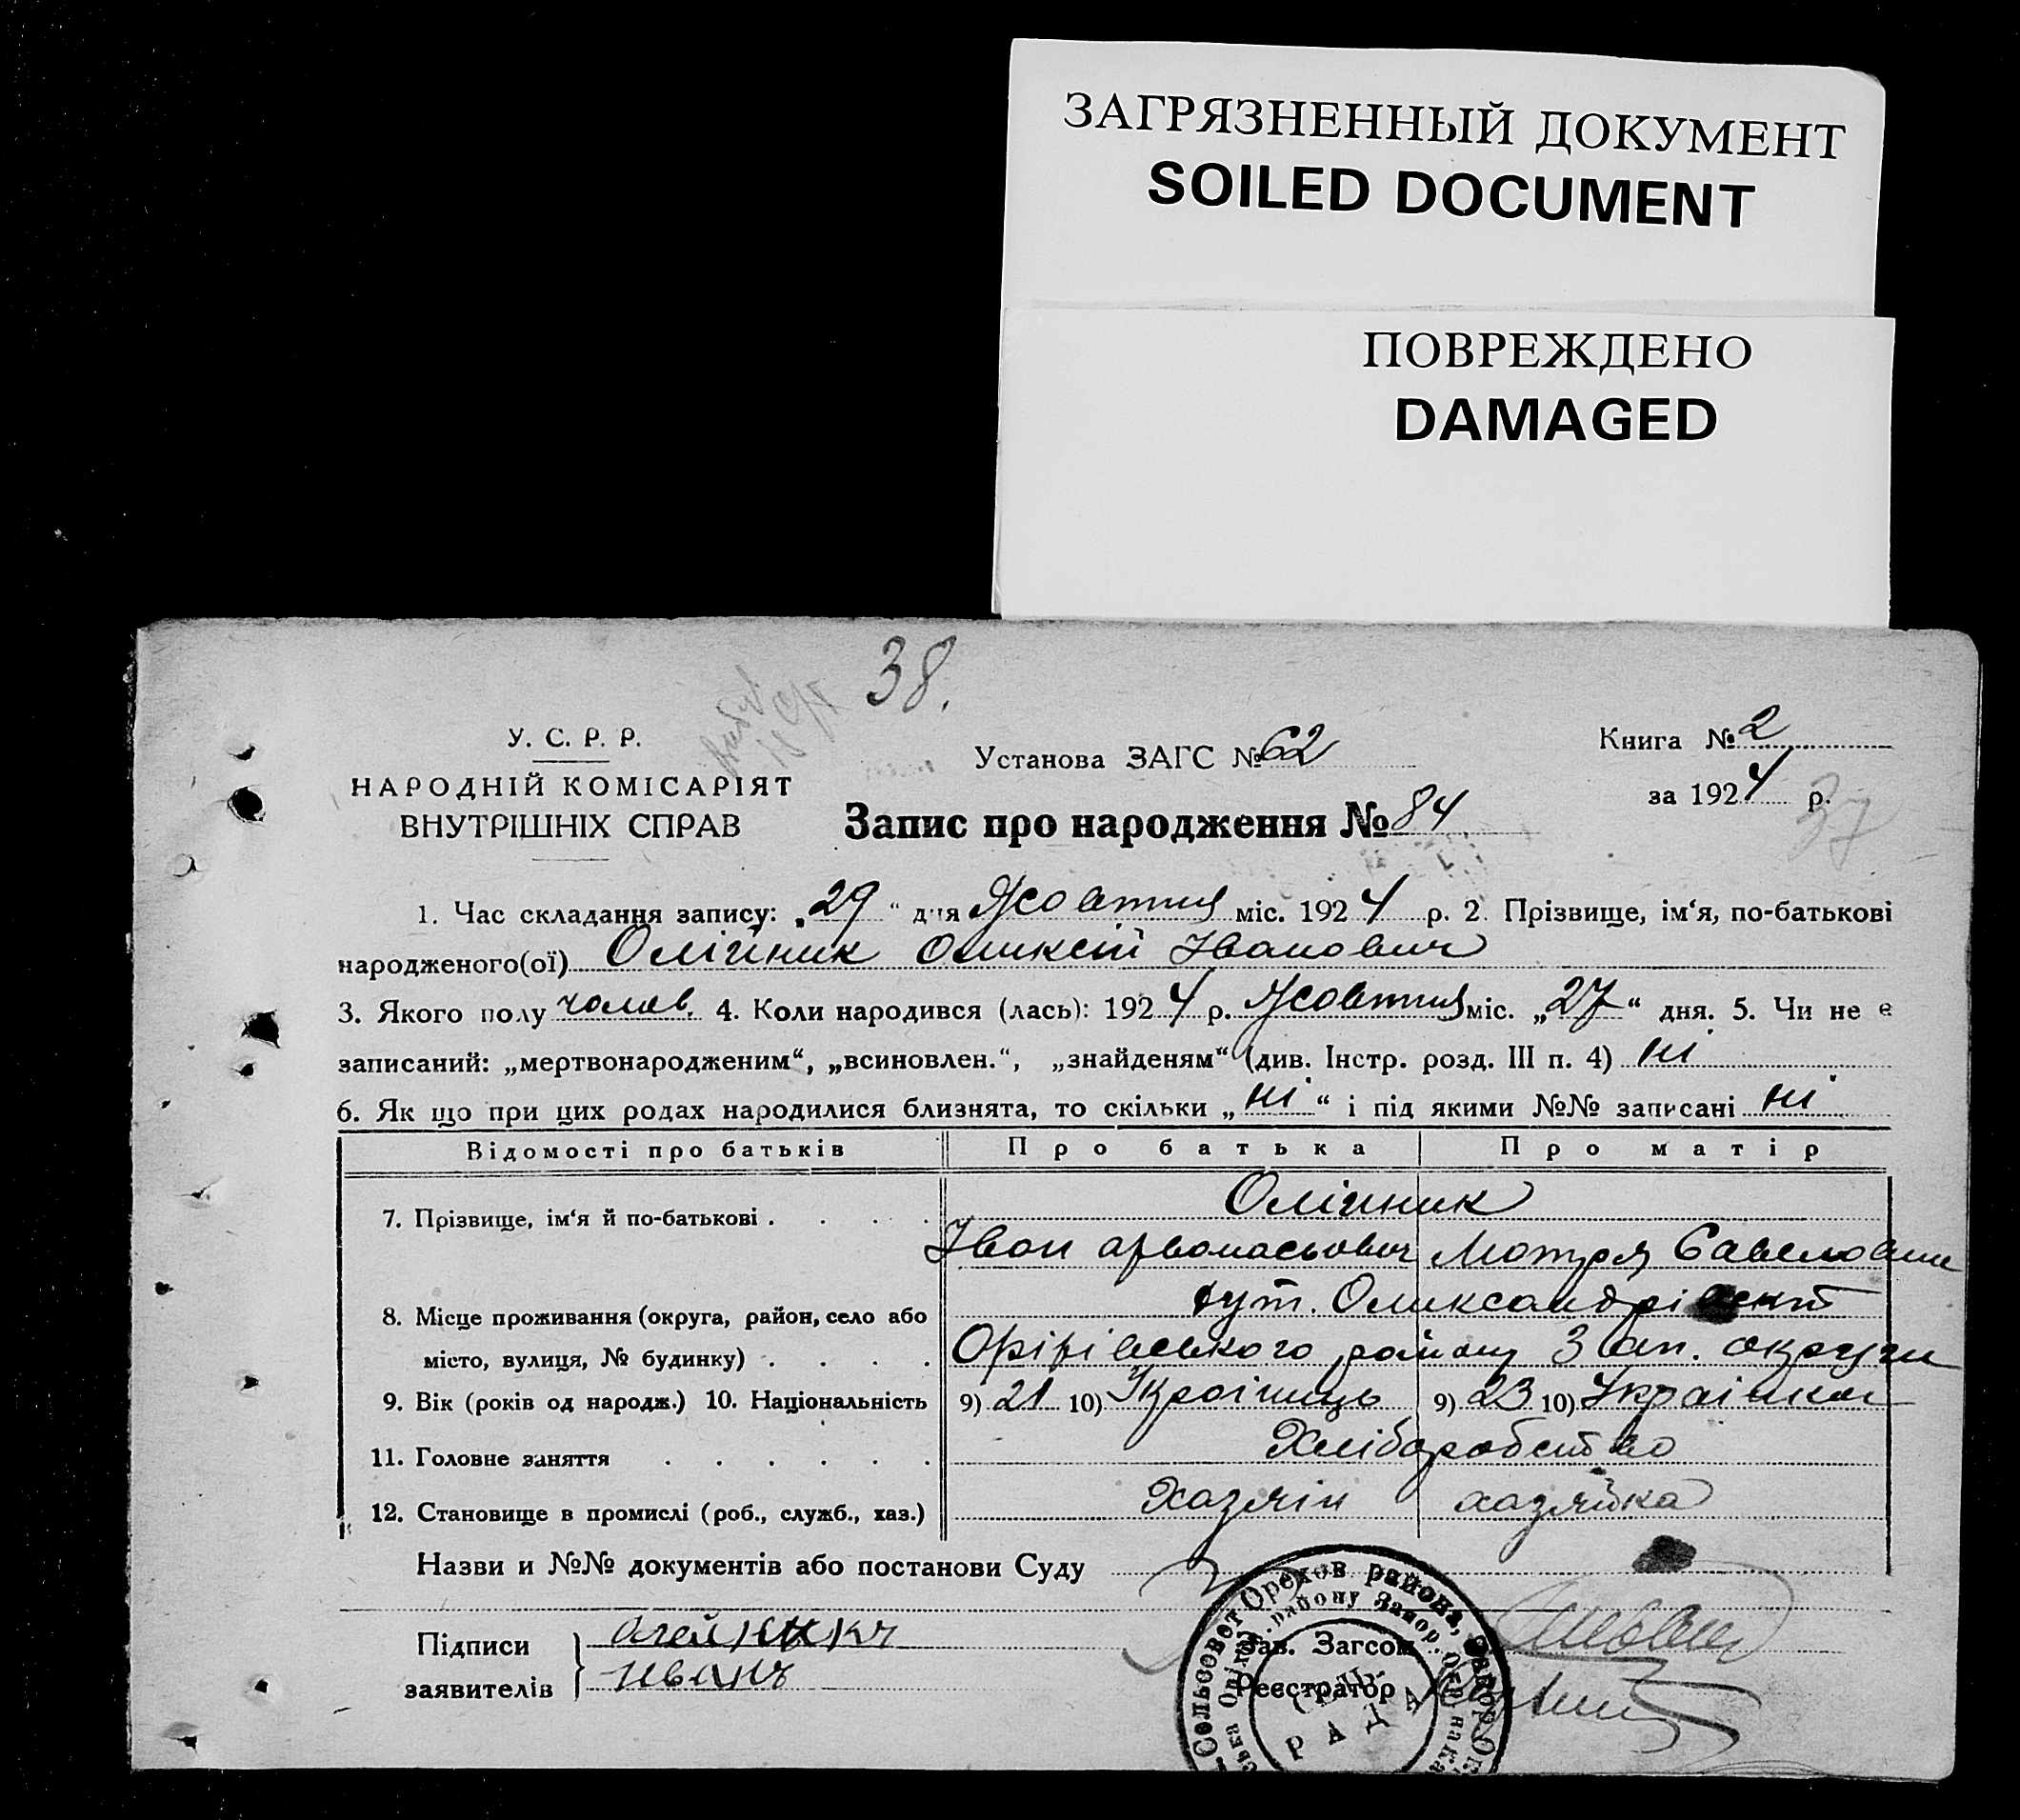 ЗАГРЯЗНЕННЫЙ ДОКУМЕНТ
SOILED DOCUMENT
ПОВРЕЖДЕНО
DAMAGED
38.
У. С. Р. Р.
НАРОДНІЙ КОМІСАРІЯТ
ВНУТРІШНІХ СПРАВ
Установа ЗАГС № 62
Книга № 2
за 1924 р.
37
Запис про народження № 84
1. Час складання запису: „29“ дня Жовтня міс. 1924 р. 2. Прізвище, ім‘я, по-батькові
народженого(ої) Олійник Оликсій Іванович
3. Якого полу чолов. 4. Коли народився (лась): 1924 р. Жовтня міс. „27“ дня. 5. Чи не е
записаний: „мертвонародженим“, „всиновлен.“, „знайденям“ (див. Інстр. розд. III п. 4) ні
6. Як що при цих родах народилися близнята, то скільки „ні“ і під якими №№ записані ні
Відомості про батьків Про батька Про матір
7. Прізвище, ім‘я й по-батькові . . . . Олійник
Іван Мотря
8. Місце проживання (округа, район, село або хут. Оликсандрівськ
місто, вулиця, № будинку) . . . . Оріхівського району Зап. округи
9. Вік (років од народж.) 10. Національність 9) 21 10) Украіниць 9) 23 10) Украінка
11. Головне заняття . . . . . . Хліборобство
12. Становище в промислі (роб., служб., хаз.) Хазяін хазяйка
Назви и №№ документів або постанови Суду
Підписи Олейникъ
заявителів Иванъ
Зав. Загсом
Реєстратор
Сельсовет Орехов района, Запор. Ок
ська Оріхів. району Запор. Ок
СІЛЬ.
РАДА